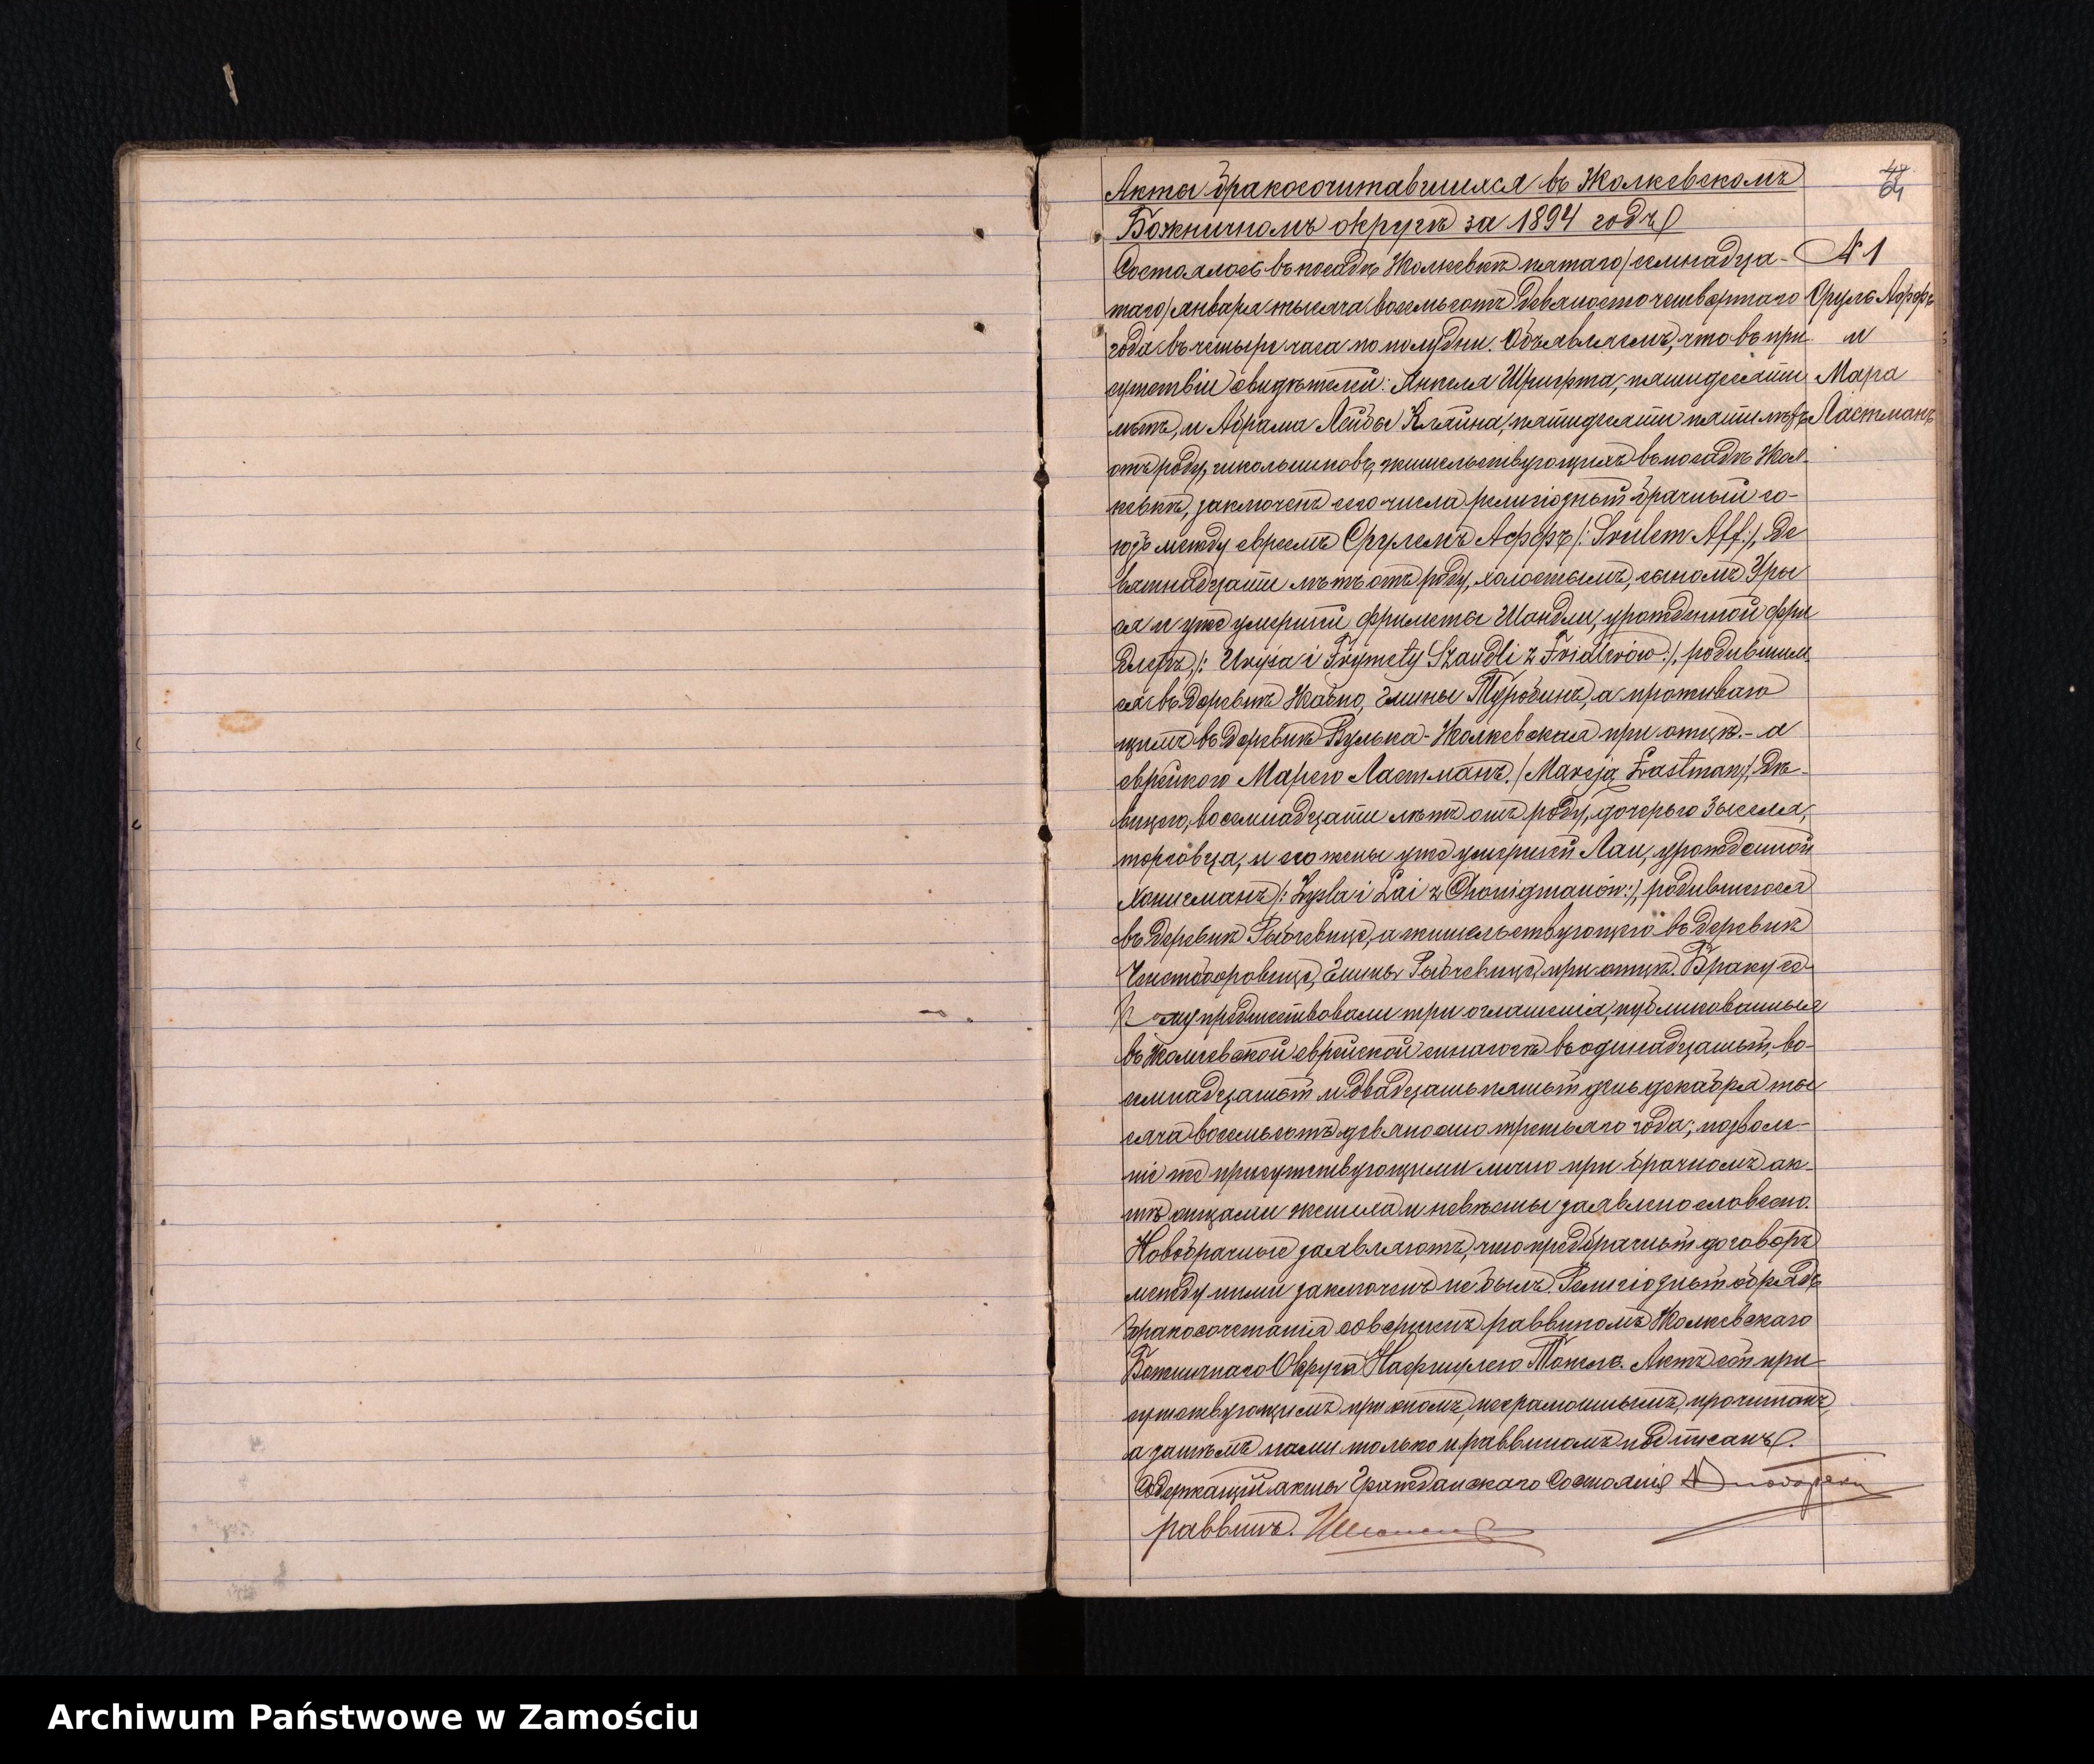 Акты бракосочитавшихся въ Жолкевскомъ
Божничномъ округѣ за 1894 годъ
64
Состоялось въ посадѣ Жолкевкѣ пятаго/семнадца-
№ 1
таго/января тысяча восемьсотъ девяносто четвертаго
Сруль Аффъ
года въ четыре часа по полудни. Объявляемъ, что въ при
и
сутствіи свидѣтелей: Анкеля Шрифта, пятидесяти
Мара
лѣтъ, и Абрама Лейбы Клайна, пятидесяти пяти лѣтъ
Ластманъ
отъ роду, школьниковъ, жительствующихъ въ посадѣ Жол-
кевкѣ, заключенъ сего числа религіозный брачный со-
юзъ между евреемъ Срулемъ Аффъ /: Srulem Aff:/, де
вятнадцати лѣтъ отъ роду, холостымъ, сыномъ Уры
ся и уже умершей Фриметы Шандли, урожденной Фри
длеръ /: Urysia i Frymety Szandli z Fridlerów:/, родившим
ся въ деревнѣ Жабно, Гмины Туробинъ, а проживаю
щимъ въ деревнѣ Вулька-Жолкевская при отцѣ. - а
еврейкою Марею Ластманъ /Mareją Lastman/, дѣ-
вицею, восемнадцати лѣтъ отъ роду, дочерью Зыселя,
торговца, и его жены уже умершей Лаи, урожденной
Хонигманъ /: Zysla i Łai z Chonigmanów:/, родившеюся
въ деревнѣ Рыбчевице, а жительствующею въ деревнѣ
Гмины Рыбчевице при отцѣ. Браку се-
му предшествовали три оглашенія, публикованныя
въ Жолкевской еврейской синагогѣ въ одинадцатый, во-
семнадцатый и двадцать пятый день декабря ты
сяча восемьсотъ девяносто третьяго года; позволе-
ніе же присутствующими лично при брачномъ ак-
тѣ отцами жениха и невѣсты заявлено словесно.
Новобрачные заявляютъ, что предбрачный договоръ
между ними заключенъ не былъ. Религіозный обрядъ
бракосочетанія совершенъ раввиномъ Жолкевскаго
Божничнаго Округа Нафтулею Актъ сей при
сутствующимъ при ономъ, неграмотнымъ, прочитанъ,
а затѣмъ нами только и раввиномъ подписанъ.
Содержащій акты Гражданскаго Состоянія
раввинъ.